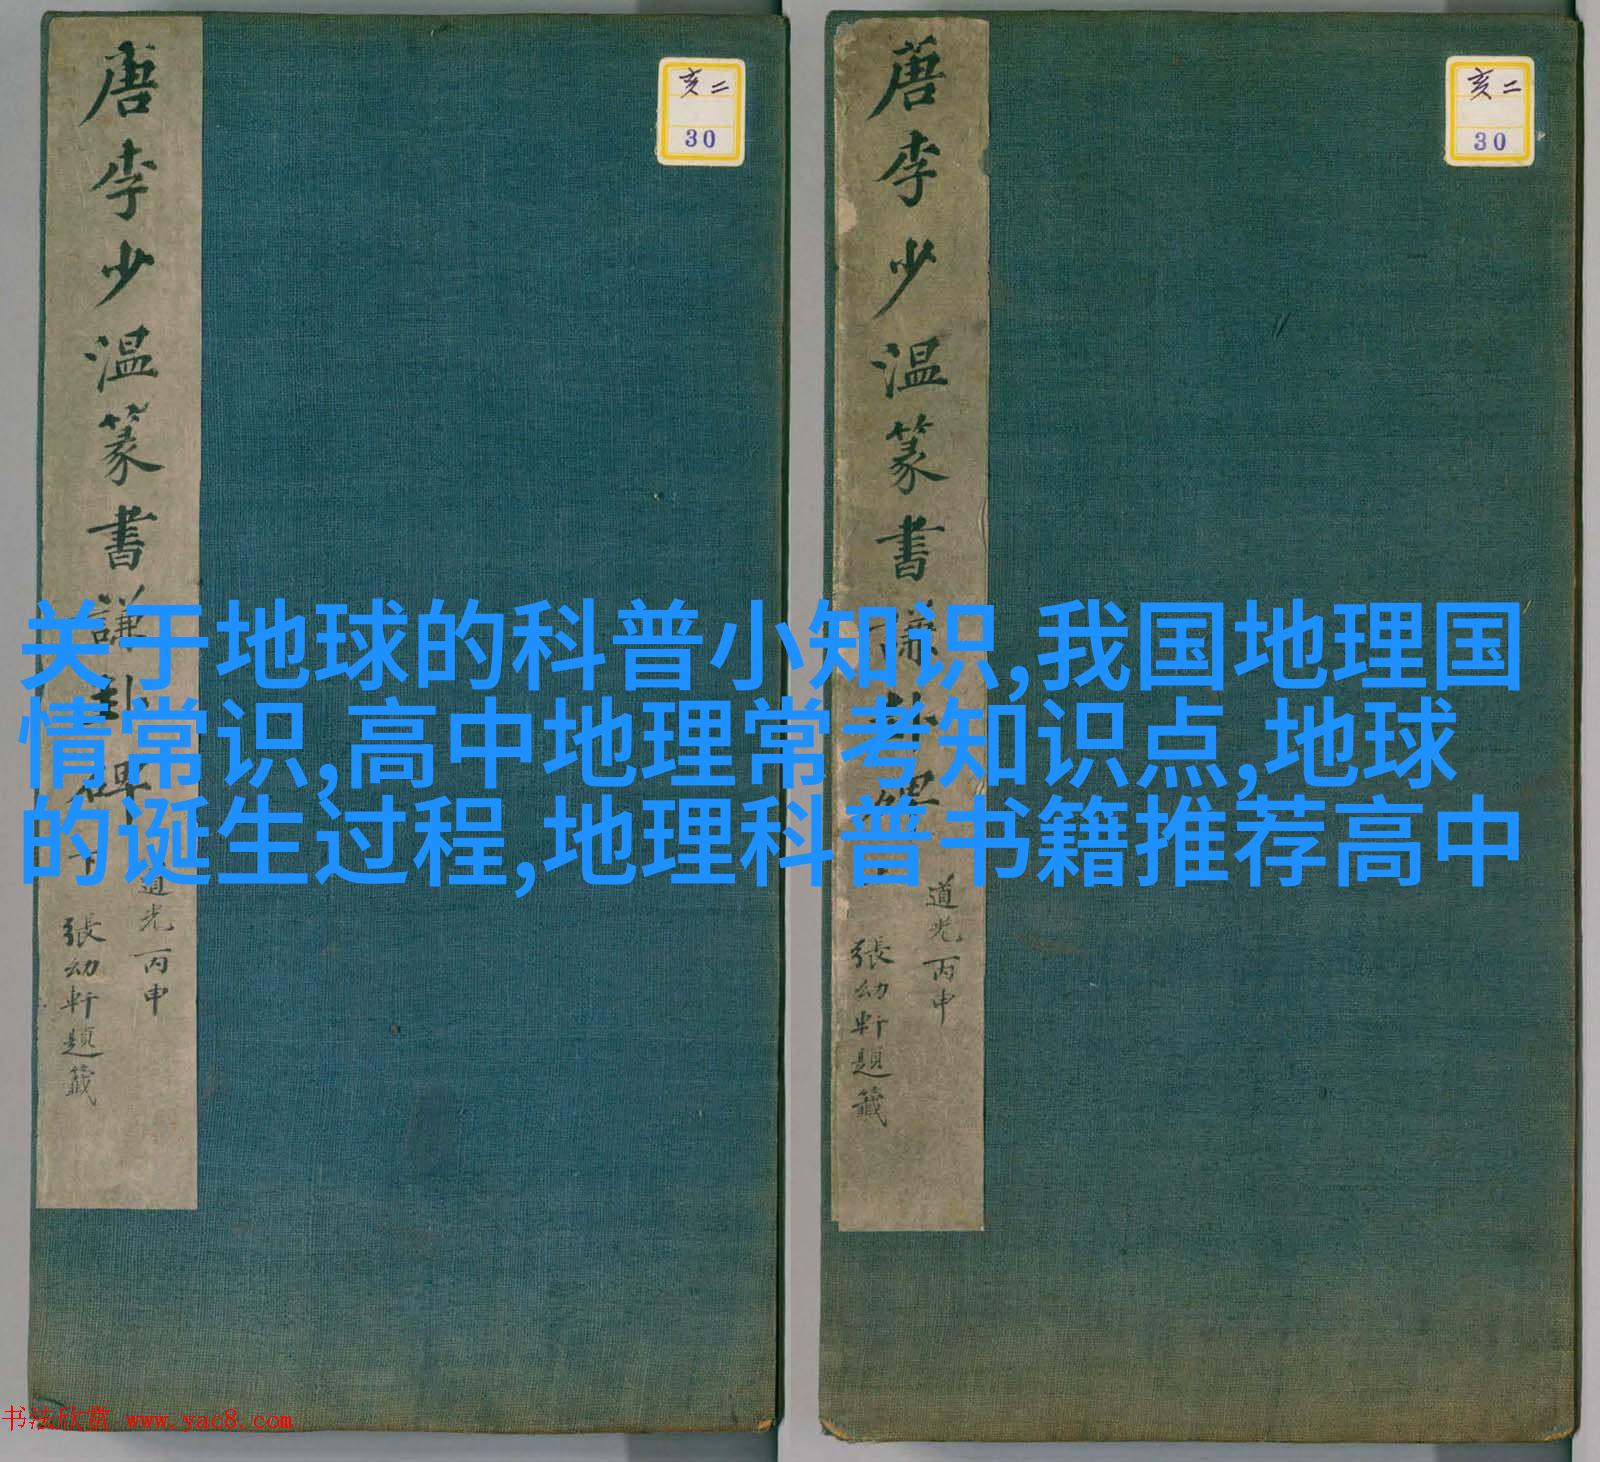 唐李少温篆書謙卦碑 下
道光丙申
張幼軒題籤
亥二
30
唐李少温篆書謙卦碑
道光丙申
張幼軒題籤
亥二
30
关于地球的科普小知识,我国地理国
情常识,高中地理常考知识点,地球
的诞生过程,地理科普书籍推荐高中
书法欣赏 www.yac8.com